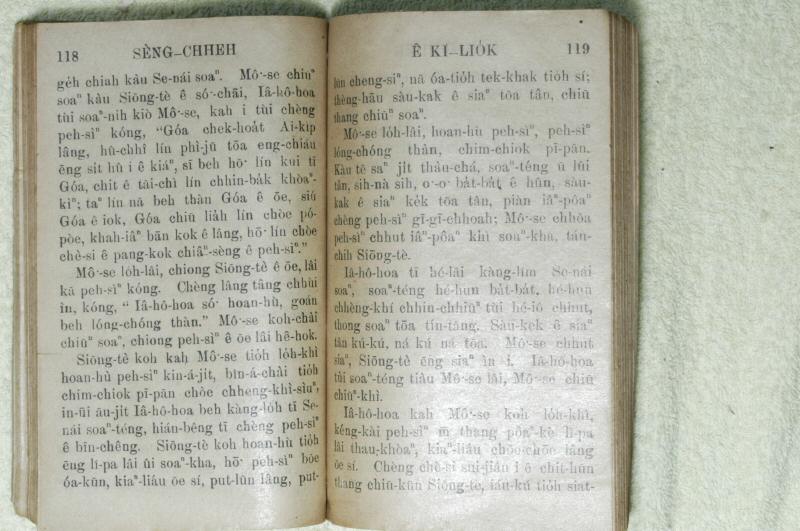 118 SÈNG-CHHEH
ge̍h chiah kàu Se-nái soaⁿ. Mô͘-se chiūⁿ
soaⁿ kàu Siōng-tè ê só͘-chāi, Iâ-hô-hoa
tùi soaⁿ-nih kiò Mô͘-se, kah i tùi chèng
peh-sìⁿ kóng, "Góa chek-hoa̍t Ai-ki̍p
lâng, hū-chhî lín phì-jū tōa eng-chiáu
ēng si̍t hū i ê kiáⁿ, sī beh hō͘ lín kui tī
Góa, chit ê tāi-chì lín chhin-ba̍k khòaⁿ-
kìⁿ; taⁿ lín nā beh thàn Góa ê ōe, siú
Góa ê iok, Góa chiū lia̍h lín chòe pó-
pòe, khah-iâⁿ bān kok ê lâng, hō͘ lín chòe
chè-si ê pang-kok chiâⁿ-sèng ê peh-sìⁿ."
Mô͘-se lo̍h-lâi, chiong Siōng-tè ê ōe, lâi
kā peh-sìⁿ kóng. Chèng lâng tâng chhùi
ìn, kóng, "Iâ-hô-hoa só͘ hoan-hù, goán
beh lóng-chóng thàn." Mô͘-se koh-chài
chiūⁿ soaⁿ, chiong peh-sìⁿ ê ōe lâi hê-hok.
Siōng-tè koh kah Mô͘-se tio̍h lo̍h-khì
hoan-hù peh-sìⁿ kin-á-ji̍t, bîn-á-chài tio̍h
chim-chiok pī-pān chòe chheng-khì-siùⁿ,
in-ūi āu-ji̍t Iâ-hô-hoa beh kàng-lo̍h tī Se-
nái soaⁿ-téng, hián-bêng tī chèng peh-sìⁿ
ê bīn-chêng. Siōng-tè koh hoan-hù tio̍h
ēng lî-pa lâi ûi soaⁿ-kha, hō͘ peh-sìⁿ bōe
óa-kūn, kiaⁿ-liáu ōe sí, put-lūn lâng, put-
Ê KÌ-LIO̍K 119
lūn cheng-siⁿ, nā óa-tio̍h tek-khak tio̍h sí;
thèng-hāu sàu-kak ê siaⁿ tōa tân, chiū
thang chiūⁿ soaⁿ.
Mô͘-se lo̍h-lâi, hoan-hù peh-sìⁿ, peh-sìⁿ
lóng-chóng thàn, chim-chiok pī-pān.
Kàu tē saⁿ ji̍t thàu-chá, soaⁿ-téng ū lûi
tân, sih-nà sih, o͘-o͘ ba̍t-ba̍t ê hûn, sàu-
kak ê siaⁿ ke̍k tōa tân, piàn iâⁿ-pôaⁿ
chèng peh-sìⁿ gī-gī-chhoah; Mô͘-se chhōa
peh-sìⁿ chhut iâⁿ-pôaⁿ khì soaⁿ-kha, tán-
chih Siōng-tè.
Iâ-hô-hoa tī hé-lāi kàng-lîm Se-nái
soaⁿ, soaⁿ-téng hé-hun ba̍t-ba̍t, hé-hun
chhèng-khí chhin-chhiūⁿ tùi hé-iô chhut,
thong soaⁿ tōa tín-tāng. Sàu-kek ê siaⁿ
tân kú-kú, ná kú ná tōa. Mô͘-se chhut
siaⁿ, Siōng-tè ēng siaⁿ ìn i. Iâ-hô-hoa
tùi soaⁿ-téng tiàu Mô͘-se lâi, Mô͘-se chiū
chiūⁿ-khì.
Iâ-hô-hoa kah Mô͘-se koh lo̍h-khì,
kéng-kài peh-sìⁿ m̄ thang pôaⁿ-kè lî-pa
lâi thau-khòaⁿ, kiaⁿ-liáu chōe-chōe lâng
ōe sí. Chèng chè-si sui-jiân i ê chit-hūn
thang chiū-kūn Siōng-tè, iáu-kú tio̍h siat-